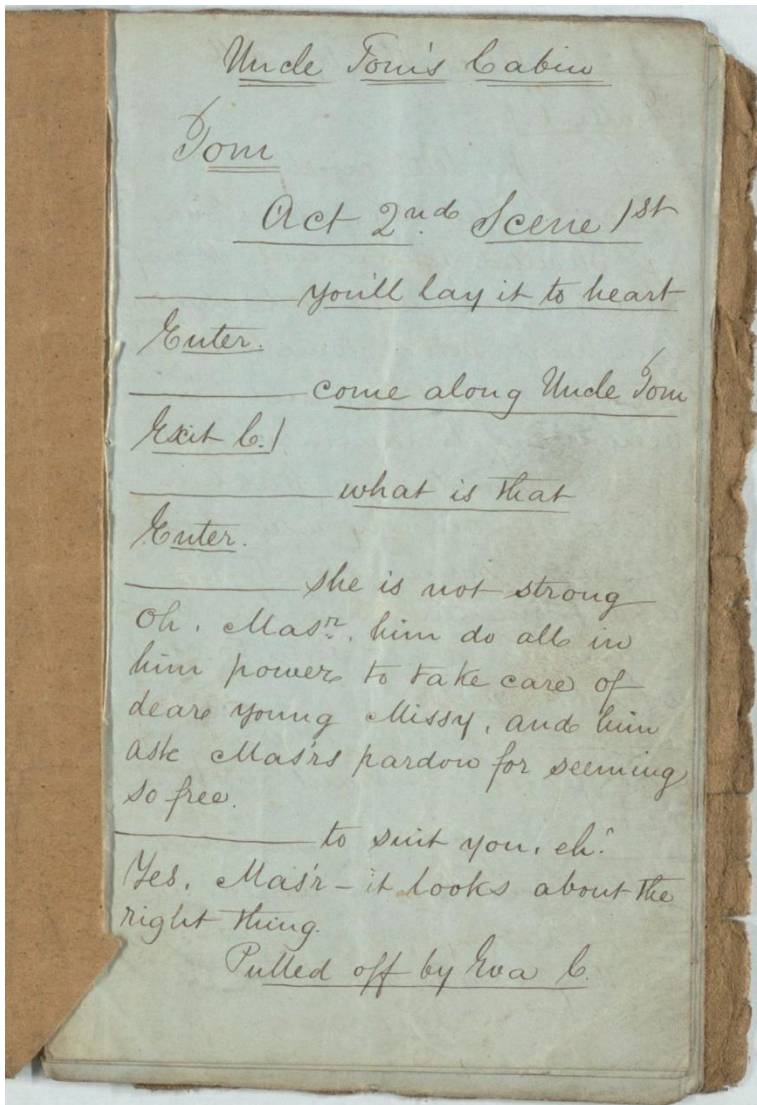 Uncle Tom's Cabin
Tom
Act 2nd. Scene 1st
you'll lay it to heart
Enter.
come along Uncle Tom
Exit C. /
what is that
Enter.
she is not strong
Oh. Masr. him do all in
him power to take care of
dear young Missy, and him
ask Mas'rs pardon for seeming
so free.
to suit you, eh?
Yes, Mas'r – it looks about the
right thing.
Pulled off by Eva C.